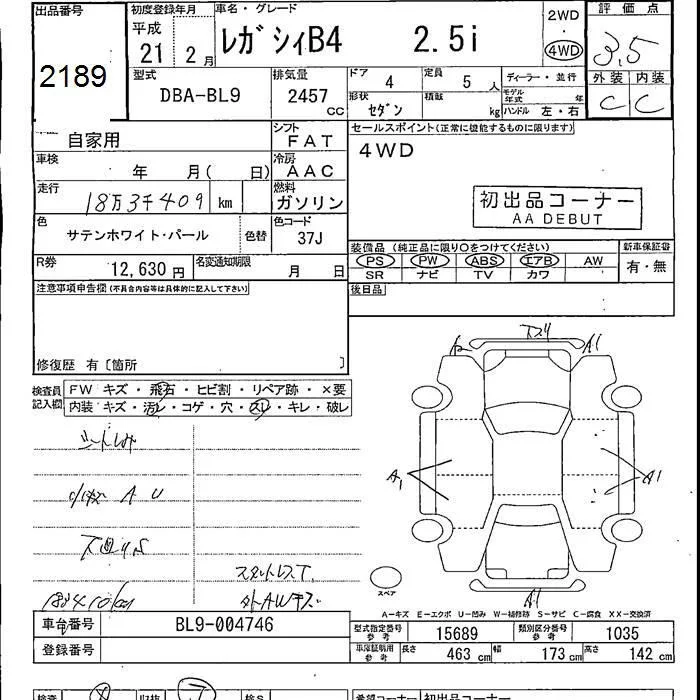 出品番号 初度登録年月 車名・グレード 評価点
2189 平成 21年 2月 レガシィB4 2.5i 2WD 4WD 3.5
型式 DBA-BL9 排気量 2457 cc ドア 4 定員 5 人 ディーラー・並行 外装 内装
形状 セダン 積載 kg モデル年式 年 ハンドル 左・右 C C
自家用 シフト FAT セールスポイント(正常に機能するものに限ります)
車検 年 月( 日) 冷房 AAC 4WD
走行 18万3千409 km 燃料 ガソリン 初出品コーナー
AA DEBUT
色 サテンホワイト・パール 色替 色コード 37J
装備品 (純正品に限り○をつけてください) 新車保証書
R券 12,630 円 名変通知期限 月 日 PS PW ABS エアB AW 有・無
SR ナビ TV カワ
注意事項申告欄(不具合内容等は具体的に記入して下さい) 後日品
修復歴 有〔箇所 〕
検査員記入欄 FW キズ・飛石・ヒビ割・リペア跡・×要
内装 キズ・汚レ・コゲ・穴・スレ・キレ・破レ
A1
A1
A1
A1
スペア
スタットレスT.
A-キズ E-エクボ U-凹み W-補修跡 S-サビ C-腐食 XX-交換済
車台番号 BL9-004746 型式指定番号 参考 15689 類別区分番号 参考 1035
登録番号 車庫証明用 参考 長さ 463 cm 幅 173 cm 高さ 142 cm
希望コーナー 初出品コーナー